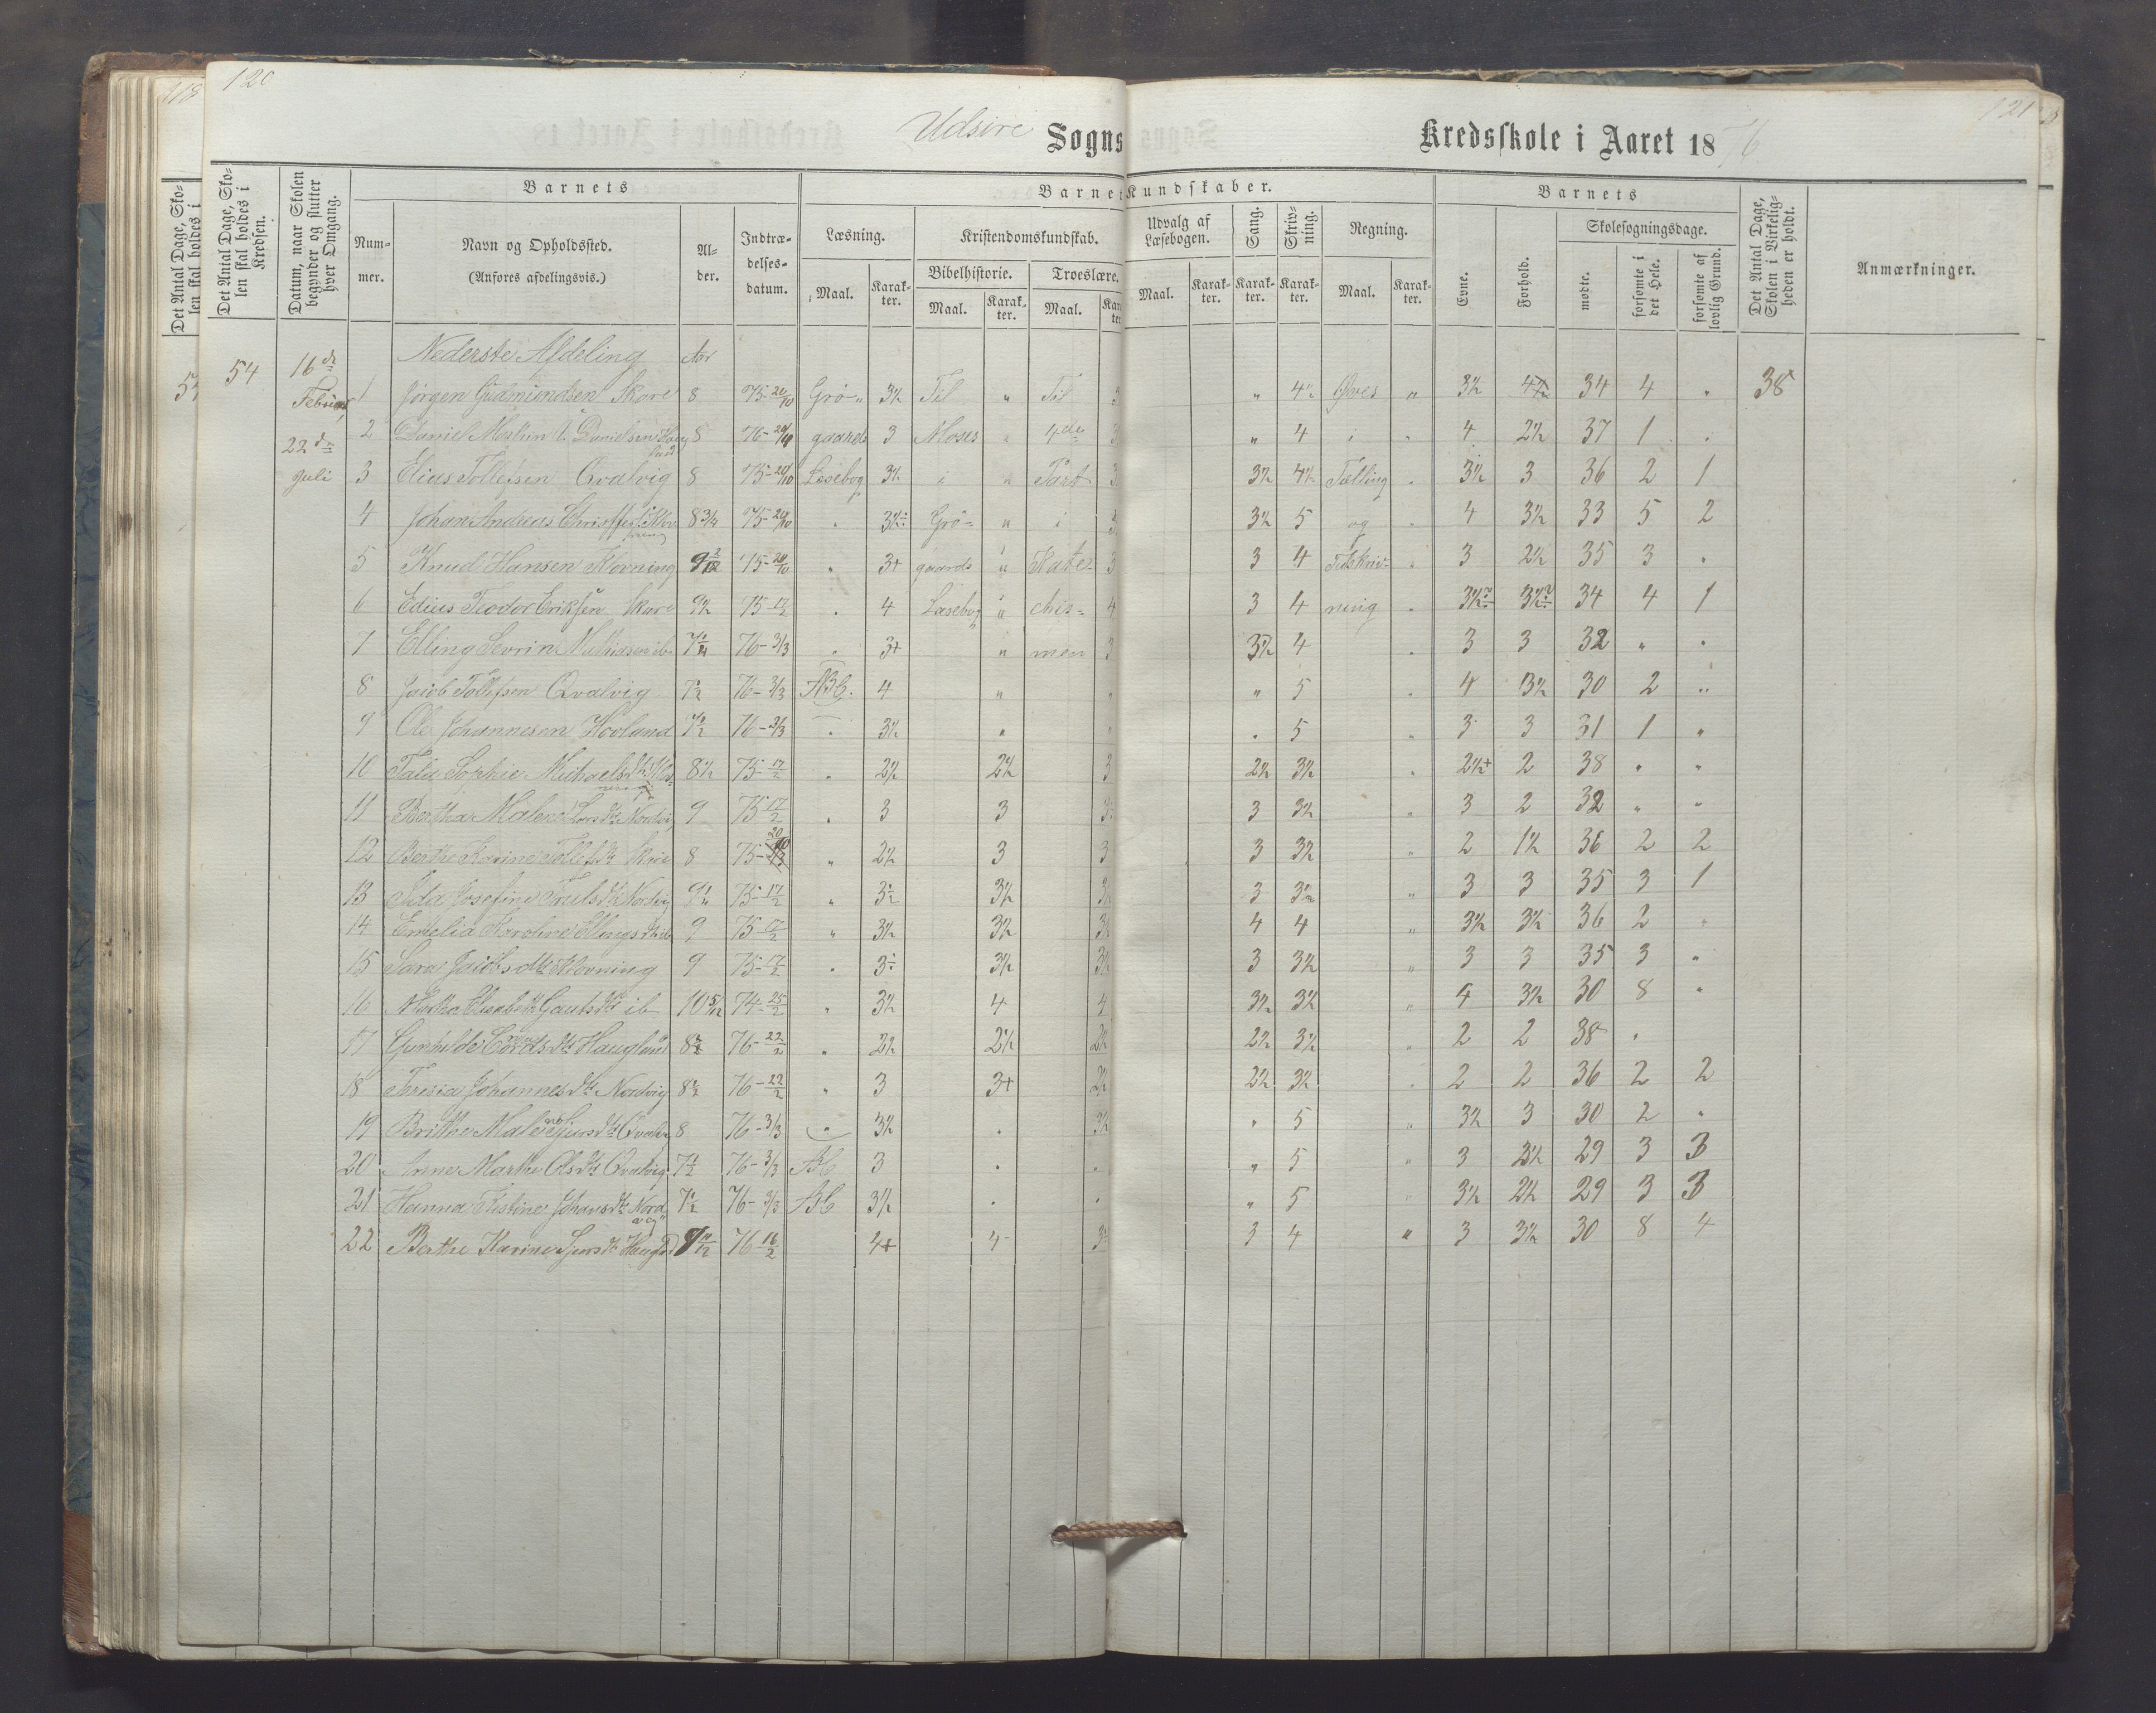 118
120
121
Udsire Sogns Kredsskole i Aaret 1876
Det Antal Dage, Skolen skal holdes i
Det Antal Dage, Skolen skal holdes i Kredsen.
Datum, naar Skolen begynder og slutter hver Omgang.
Barnets
Nummer.
Navn og Opholdssted.
(Anføres afdelingsvis.)
Alder.
Indtrædelsesdatum.
Barnets Kundskaber.
Læsning.
Maal. Karakter.
Kristendomskundskab.
Bibelhistorie. Troeslære.
Maal. Karakter. Maal. Kar
Udvalg af Læsebogen.
Maal. Karakter.
Sang. Karakter.
Skrivning. Karakter.
Regning.
Maal. Karakter.
Barnets
Evne.
Forhold.
Skolesøgningsdage.
mødte.
forsømte i det Hele.
forsømte af lovlig Grund.
Det Antal Dage, Skolen i Virkeligheden er holdt.
Anmærkninger.
54 16de Februar 22de Juli
Nederste Afdeling Aar
1 Jørgen Gudmundsen Skare 8 75-20/10 Grø- 3½ Til " Til 3 " 4½ Øves " 3½ 34 4 " 38
2 Daniel Danielsen 8 76- gaards 3 Moses " 4de 3 " 4 i " 4 2½ 37 1
3 Elias Tollefsen Qvalvig 8 75-20/10 Læsebog 3½ i " Part 3 3½ 4½ Tælling " 3½ 3 36 2 1
4 Johan Andreas 8¾ 75-20/10 " Grø- " i 3 3½ 5 og " 4 3½ 33 5 2
5 Knud Hansen Klovning 75-20/10 " 3+ gaards " Kate- 3 3 4 Talskriv- " 3 2½ 35 3 "
6 Edius Teodor Eriksen Skare 9½ 75-17/2 " 4 Læsebog " chis- 4 3 4 ning " 34 4 1
7 Elling Sevrin Mathiasen ib 76-3/3 " 3+ " men 3 3½ 4 " 3 3 32 " "
8 Jacob Tollefsen Qvalvig 7½ 76-3/3 ABC. 4 " " 5 " 4 3½ 30 2 "
9 Ole Johannesen Hovland 7½ 76-3/3 " 3½ " " 5 " 3 3 31 1 "
10 Tala Sophie Michaelsdtr 8½ 75-17/2 " 2½ 2½ 3 2½ 3½ " 2½+ 2 38 " "
11 Bertha Malene Larsdtr Nordvig 9 75-17/2 " 3 3 3 3½ " 3 2 32 " "
12 Berthe Karine Tollefsdtr Skare 8 75- " 2½ 3 3 3 3½ " 2 1½ 36 2 2
13 Ida Josefine Nordvig 75-17/2 " 3½ 3½ 3 3½ " 3 3 35 3 1
14 Emelia Karoline Ellingsdtr ib 9 75-17/2 " 3½ 3½ 3½ 4 4 " 3½ 3½ 36 2 "
15 Sara Jacobsdtr Klovning 9 75-17/2 " 3 3½ 3½ 3 3½ " 3 3 35 3 "
16 Martha Elisabeth Gautsdtr ib 74-25/2 " 3½ 4 4 3½ 3½ " 4 3½ 30 8 "
17 Gunhilde Haugland 76-22/2 " 2½ 2½ 2½ 2½ 3½ " 2 2 38 "
18 Teresia Johannesdtr Nordvig 8½ 76-22/2 " 3 3+ 2½ 3½ " 2 2 36 2 2
19 Brithe Malene Sjursdtr Qvalvig 8 76-3/3 " 3½ " 3½ " 5 " 3½ 3 30 2 "
20 Anne Marthe Olsdtr Qvalvig 7½ 76-3/3 ABC 3 " " " 5 " 3 2½ 29 3 3
21 Hanna Kistine Johansdtr Nordvig 7½ 76-3/3 ABC 3½ " " " 5 " 3½ 2½ 29 3 3
22 Berthe Karine Sjursdtr Haugland 76-16/2 4+ 4 3 3 4 " 3 3½ 30 8 4